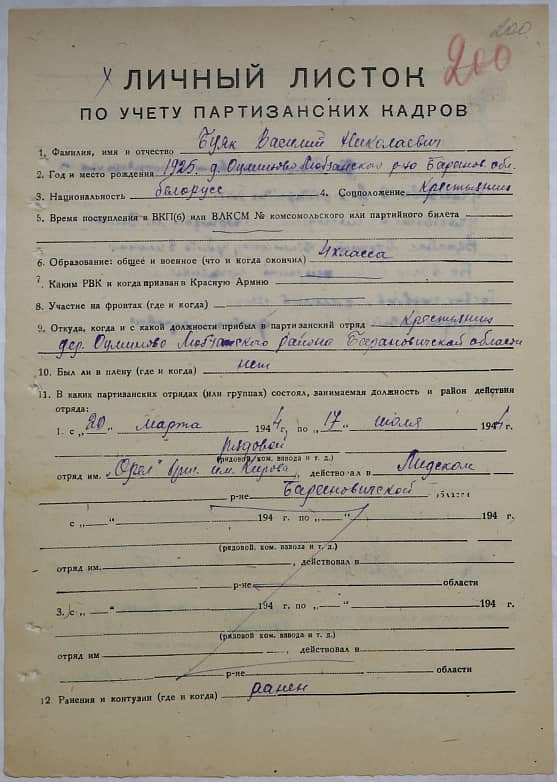 200
200
х ЛИЧНЫЙ ЛИСТОК
ПО УЧЕТУ ПАРТИЗАНСКИХ КАДРОВ
1. Фамилия, имя и отчество Буяк Василий Николаевич
2. Год и место рождения 1925 д. Осмолово р-на Баранов. обл.
3. Национальность белорусс 4. Соцположение Крестьянин
5. Время поступления в ВКП(б) или ВЛКСМ № комсомольского или партийного билета
6. Образование: общее и военное (что и когда окончил) 4 класса
7. Каким РВК и когда призван в Красную Армию
8. Участие на фронтах (где и когда)
9. Откуда, когда и с какой должности прибыл в партизанский отряд Крестьянин
дер. района Барановичской области
10. Был ли в плену (где и когда) нет
11. В каких партизанских отрядах (или группах) состоял, занимаемая должность и район действия
отряда:
1. с „20" марта 1944 г. по „17" июля 1944 г.
рядовой
(рядовой, ком. взвода и т. д.)
отряд им. "Орёл" бриг. им. Кирова, действовал в Лидском
р-не Барановичской области
с „ " 194 г. по „ " 194 г.
(рядовой, ком. взвода и т. д.)
отряд им. , действовал в
р-не области
3. с „ " 194 г. по „ " 194 г.
(рядовой, ком. взвода и т. д.)
отряд им , действовал в
р-не области
12. Ранения и контузии (где и когда) ранен